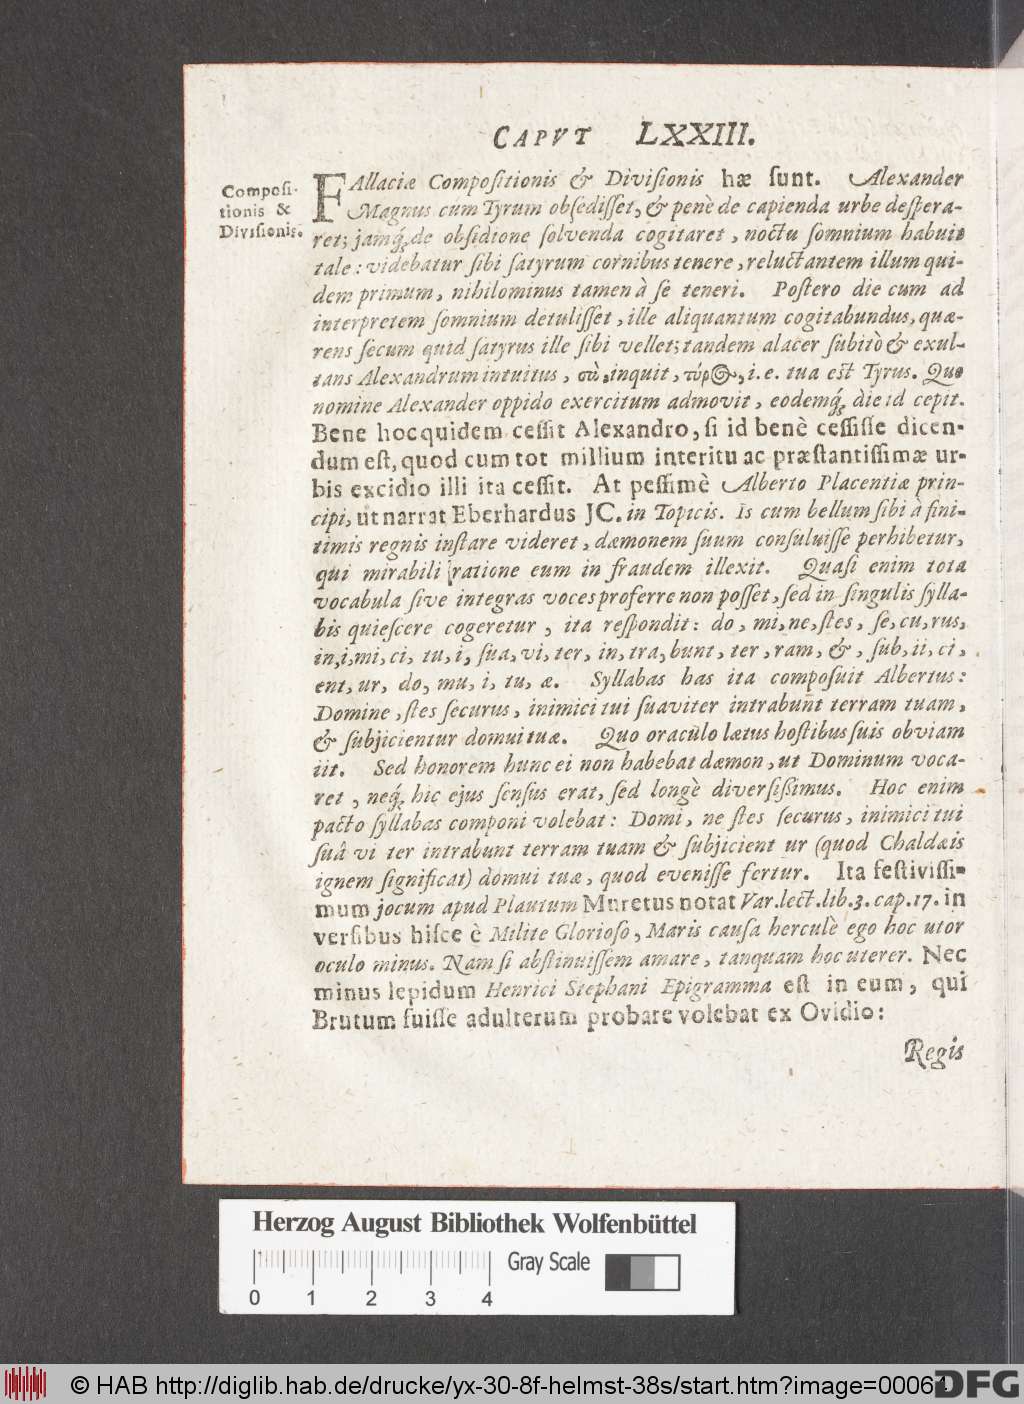 CAPVT LXXIII.
Composi-
tionis &
Divisionis.
FAllaciæ Compositionis & Divisionis hæ sunt. Alexander
Magnus cum Tyrum obsedisset, & penè de capienda urbe despera-
ret; jamq́; de obsidione solvenda cogitaret, noctu somnium habuit
tale: videbatur sibi satyrum cornibus tenere, reluctantem illum qui-
dem primum, nihilominus tamen à se teneri. Postero die cum ad
interpretem somnium detulisset, ille aliquantum cogitabundus, quæ-
rens secum quid satyrus ille sibi vellet; tandem alacer subitò & exul-
tans Alexandrum intuitus, σὰ, inquit, τύρος, i.e. tua est Tyrus. Quo
nomine Alexander oppido exercitum admovit, eodemq́; die id cepit.
Bene hoc quidem cessit Alexandro, si id benè cessisse dicen-
dum est, quod cum tot millium interitu ac præstantissimæ ur-
bis excidio illi ita cessit. At pessimè Alberto Placentiæ prin-
cipi, ut narrat Eberhardus JC. in Topicis. Is cum bellum sibi à fini-
timis regnis instare videret, dæmonem suum consuluisse perhibetur,
qui mirabili ratione eum in fraudem illexit. Quasi enim tota
vocabula sive integras voces proferre non posset, sed in singulis sylla-
bis quiescere cogeretur, ita respondit: do, mi, ne, stes, se, cu, rus,
in, i, mi, ci, tu, i, sua, vi, ter, in, tra, bunt, ter, ram, &, sub, ii, ci,
ent, ur, do, mu, i, tu, æ. Syllabas has ita composuit Albertus:
Domine, stes securus, inimici tui suaviter intrabunt terram tuam,
& subjicientur domui tuæ. Quo oraculo lætus hostibus suis obviam
iit. Sed honorem hunc ei non habebat dæmon, ut Dominum voca-
ret, neq́; hic ejus sensus erat, sed longè diversissimus. Hoc enim
pacto syllabas componi volebat: Domi, ne stes securus, inimici tui
suâ vi ter intrabunt terram tuam & subjicient ur (quod Chaldæis
ignem significat) domui tuæ, quod evenisse fertur. Ita festivissi-
mum jocum apud Plautum Muretus notat Var. lect. lib. 3. cap. 17. in
versibus hisce è Milite Glorioso, Maris causa herculè ego hoc utor
oculo minus. Nam si abstinuissem amare, tanquam hoc uterer. Nec
minus lepidum Henrici Stephani Epigramma est in eum, qui
Brutum fuisse adulterum probare volebat ex Ovidio:
Regis
Herzog August Bibliothek Wolfenbüttel
Gray Scale
0 1 2 3 4
© HAB http://diglib.hab.de/drucke/yx-30-8f-helmst-38s/start.htm?image=00064
DFG